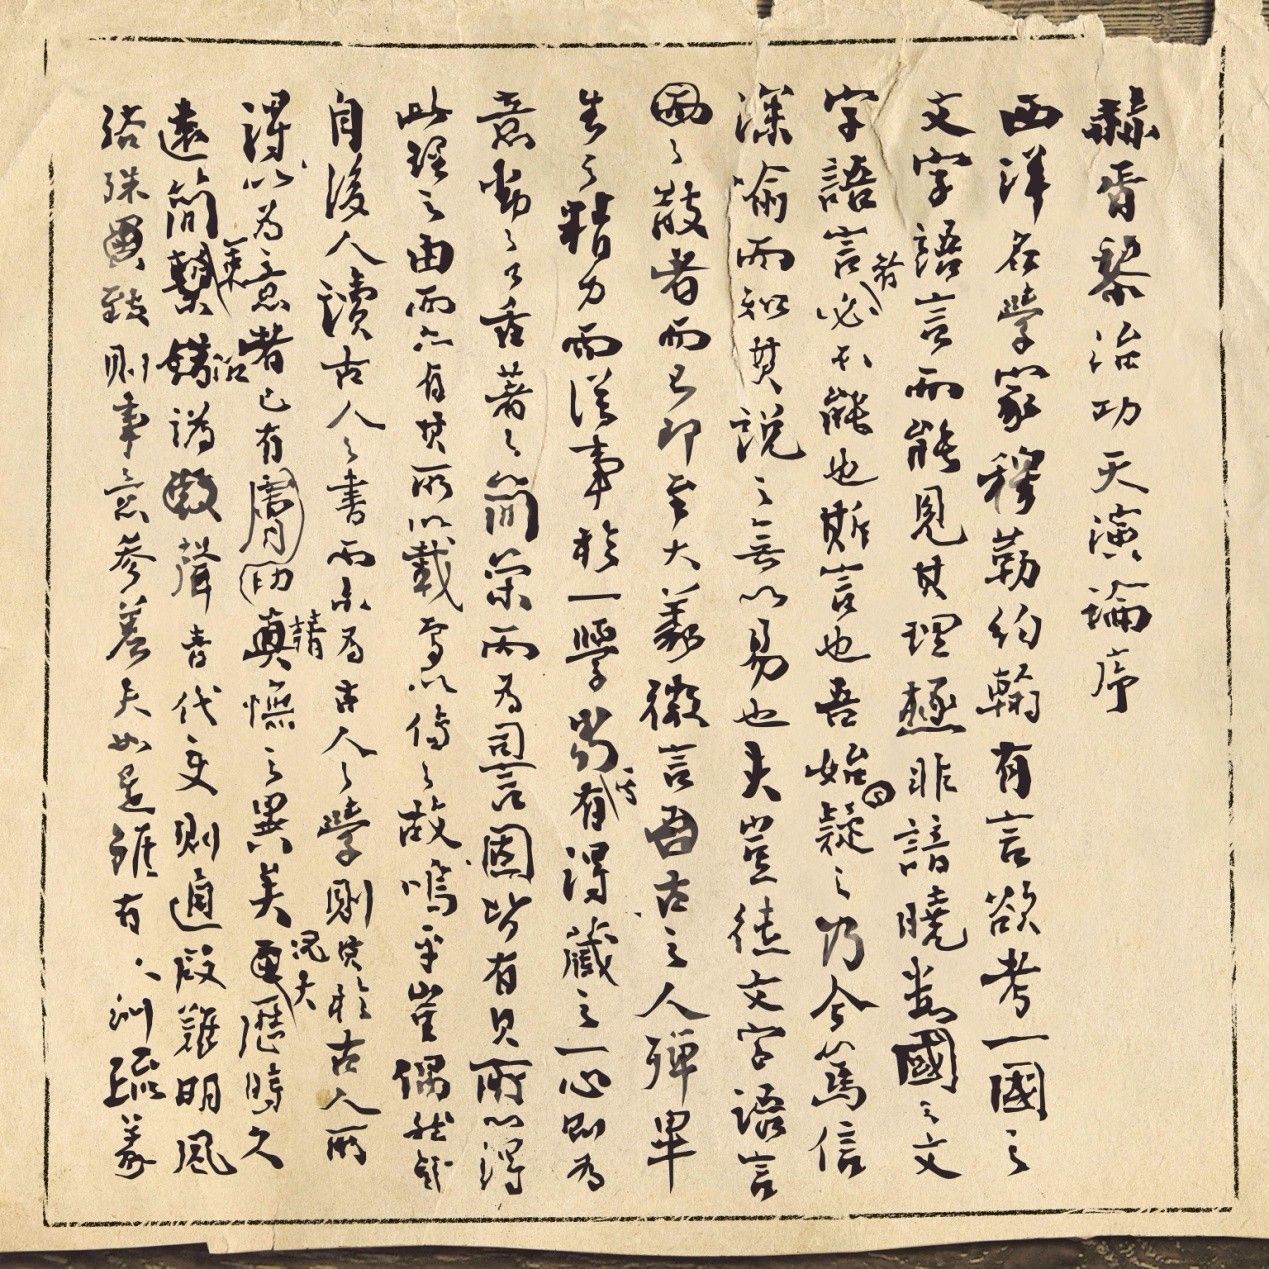 赫胥黎治功天演論序
西洋名學家穆勒約翰有言欲考一國之
文字語言而能見其理極非諳曉數國之文
字語言者必不能也斯言也吾始疑之乃今篤信
深喻而知其說之無以易也夫豈徒文字語言
之散者而已即至大義微言吾古之人殫畢
生之精力而從事於一學當其有得藏之一心則為
意動之著之簡策而為詞固皆有其所以得
此理之由而亦有其所以載焉以傳之故嗚呼豈偶然哉
自後人讀古人之書而未為古人之學則其於古人所
得以為意者已有膚切精憮之異矣況夫歷時久
遠簡策沿譌聲音代變則通叚難明風
俗殊致則事意參差夫如是雖有訓疏義